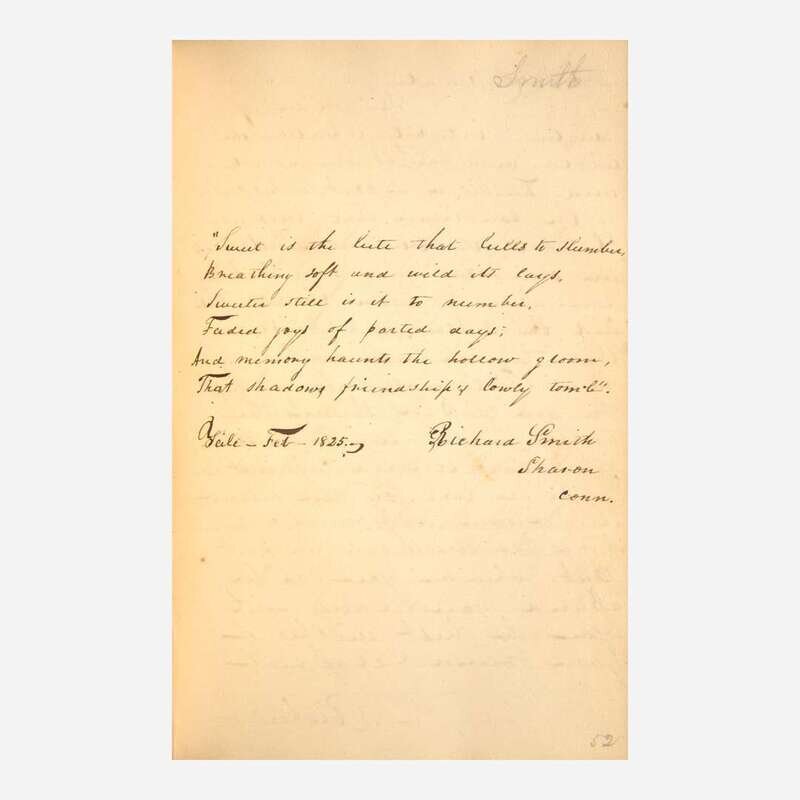 Smith
"Sweet is the lute that lulls to slumber,
Breathing soft and wild its lays,
Sweeter still is it to number,
Faded joys of parted days;
And memory haunts the hollow gloom,
That shadows friendship's lowly tomb".
Yale - Feb - 1825.
Richard Smith
Sharon
Conn.
52